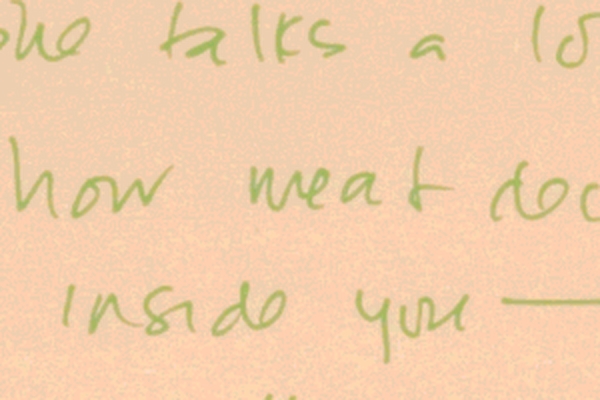 she talks a lo
how meat doe
inside you —